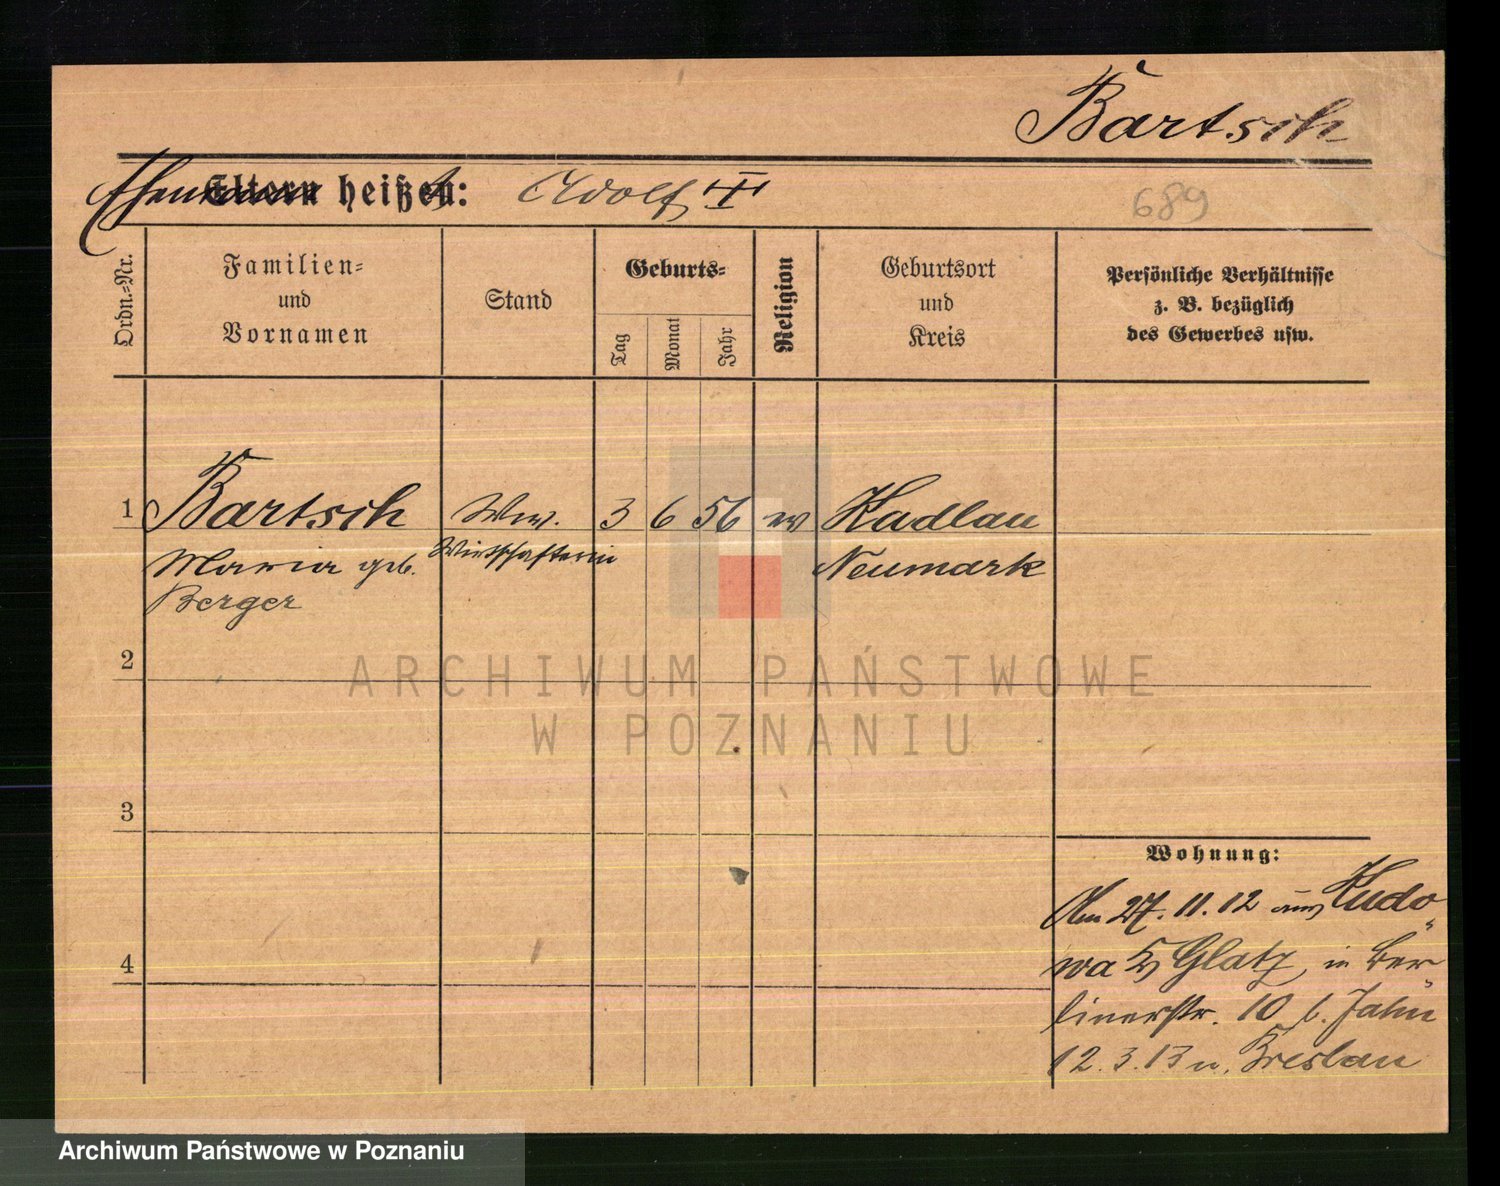 Bartsch
Ehemann Eltern heißen: Adolf
689
Ordn.-Nr.
Familien-
und
Vornamen
Stand
Geburts-
Tag
Monat
Jahr
Religion
Geburtsort
und
Kreis
Persönliche Verhältnisse
z. B. bezüglich
des Gewerbes usw.
1 Bartsch Ww. 3 6 56 ev Kadlau
Maria geb. Wirtschafterin Neumark
Berger
2
ARCHIWUM PAŃSTWOWE
W POZNANIU
3
Wohnung:
Am 27.11.12 aus Kudo
4
wa Glatz, in Ber
linerstr. 10 b. Jahn
12.3.13 n. Breslau
Archiwum Państwowe w Poznaniu